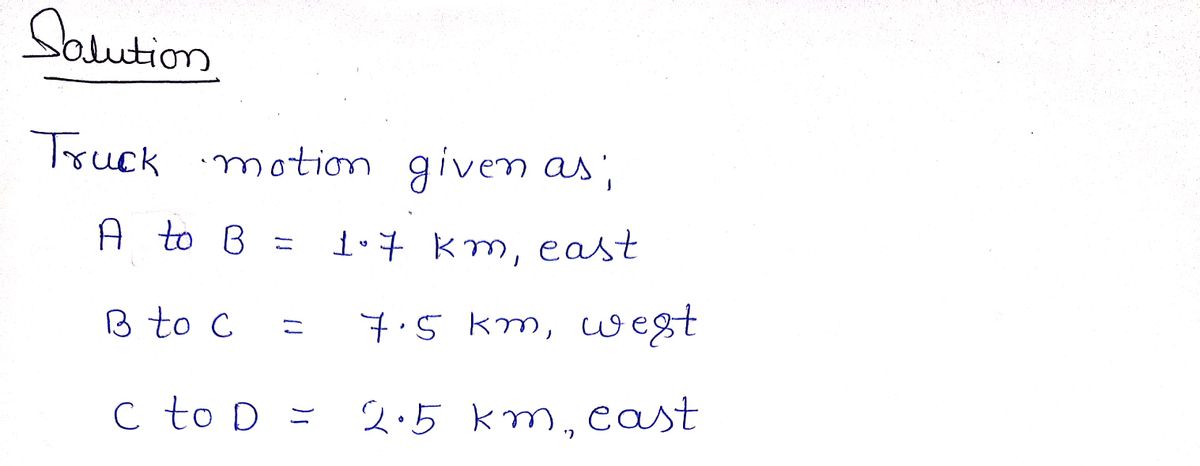 Solution
Truck motion given as;
A to B = 1.7 km, east
B to C = 7.5 km, west
C to D = 2.5 km, east